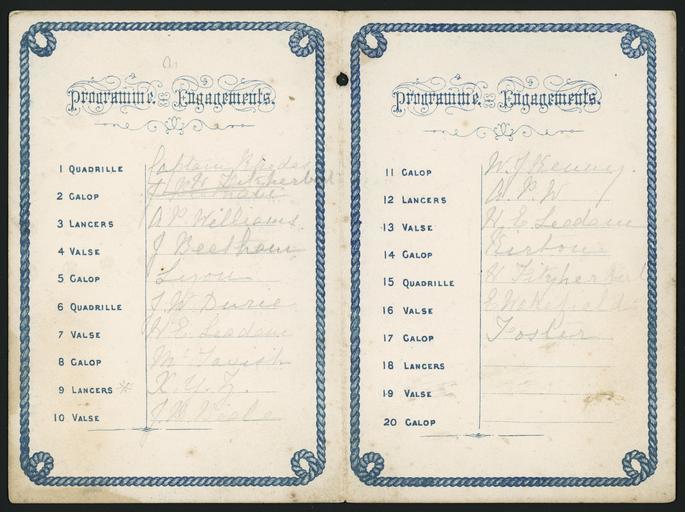 Programme. Engagements.
1 QUADRILLE Captain
2 GALOP Fitzherbert
3 LANCERS A P Williams
4 VALSE J Beetham
5 GALOP
6 QUADRILLE J W Durie
7 VALSE W E Leadam
8 GALOP McTavish
9 LANCERS * X.Y.Z.
10 VALSE
Programme. Engagements.
11 GALOP W J Kenny.
12 LANCERS A. P. W
13 VALSE W. E. Leadam
14 GALOP Kirton
15 QUADRILLE W Fitzherbert
16 VALSE E Wakefield
17 GALOP Foster
18 LANCERS
19 VALSE
20 GALOP